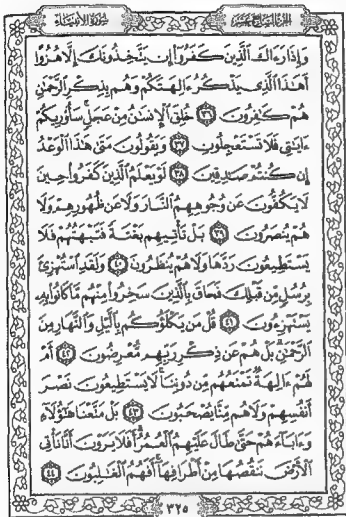 الجزء السابع عشر سورة الأنبياء
وَإِذَا رَءَاكَ ٱلَّذِينَ كَفَرُوٓا۟ إِن يَتَّخِذُونَكَ إِلَّا هُزُوًا
أَهَٰذَا ٱلَّذِى يَذْكُرُ ءَالِهَتَكُمْ وَهُم بِذِكْرِ ٱلرَّحْمَٰنِ
هُمْ كَٰفِرُونَ ٣٦ خُلِقَ ٱلْإِنسَٰنُ مِنْ عَجَلٍ سَأُو۟رِيكُمْ
ءَايَٰتِى فَلَا تَسْتَعْجِلُونِ ٣٧ وَيَقُولُونَ مَتَىٰ هَٰذَا ٱلْوَعْدُ
إِن كُنتُمْ صَٰدِقِينَ ٣٨ لَوْ يَعْلَمُ ٱلَّذِينَ كَفَرُوا۟ حِينَ
لَا يَكُفُّونَ عَن وُجُوهِهِمُ ٱلنَّارَ وَلَا عَن ظُهُورِهِمْ وَلَا
هُمْ يُنصَرُونَ ٣٩ بَلْ تَأْتِيهِم بَغْتَةً فَتَبْهَتُهُمْ فَلَا
يَسْتَطِيعُونَ رَدَّهَا وَلَا هُمْ يُنظَرُونَ ٤٠ وَلَقَدِ ٱسْتُهْزِئَ
بِرُسُلٍ مِّن قَبْلِكَ فَحَاقَ بِٱلَّذِينَ سَخِرُوا۟ مِنْهُم مَّا كَانُوا۟ بِهِۦ
يَسْتَهْزِءُونَ ٤١ قُلْ مَن يَكْلَؤُكُم بِٱلَّيْلِ وَٱلنَّهَارِ مِنَ
ٱلرَّحْمَٰنِ بَلْ هُمْ عَن ذِكْرِ رَبِّهِم مُّعْرِضُونَ ٤٢ أَمْ
لَهُمْ ءَالِهَةٌ تَمْنَعُهُم مِّن دُونِنَا لَا يَسْتَطِيعُونَ نَصْرَ
أَنفُسِهِمْ وَلَا هُم مِّنَّا يُصْحَبُونَ ٤٣ بَلْ مَتَّعْنَا هَٰٓؤُلَآءِ
وَءَابَآءَهُمْ حَتَّىٰ طَالَ عَلَيْهِمُ ٱلْعُمُرُ أَفَلَا يَرَوْنَ أَنَّا نَأْتِى
ٱلْأَرْضَ نَنقُصُهَا مِنْ أَطْرَافِهَآ أَفَهُمُ ٱلْغَٰلِبُونَ ٤٤
٣٢٥